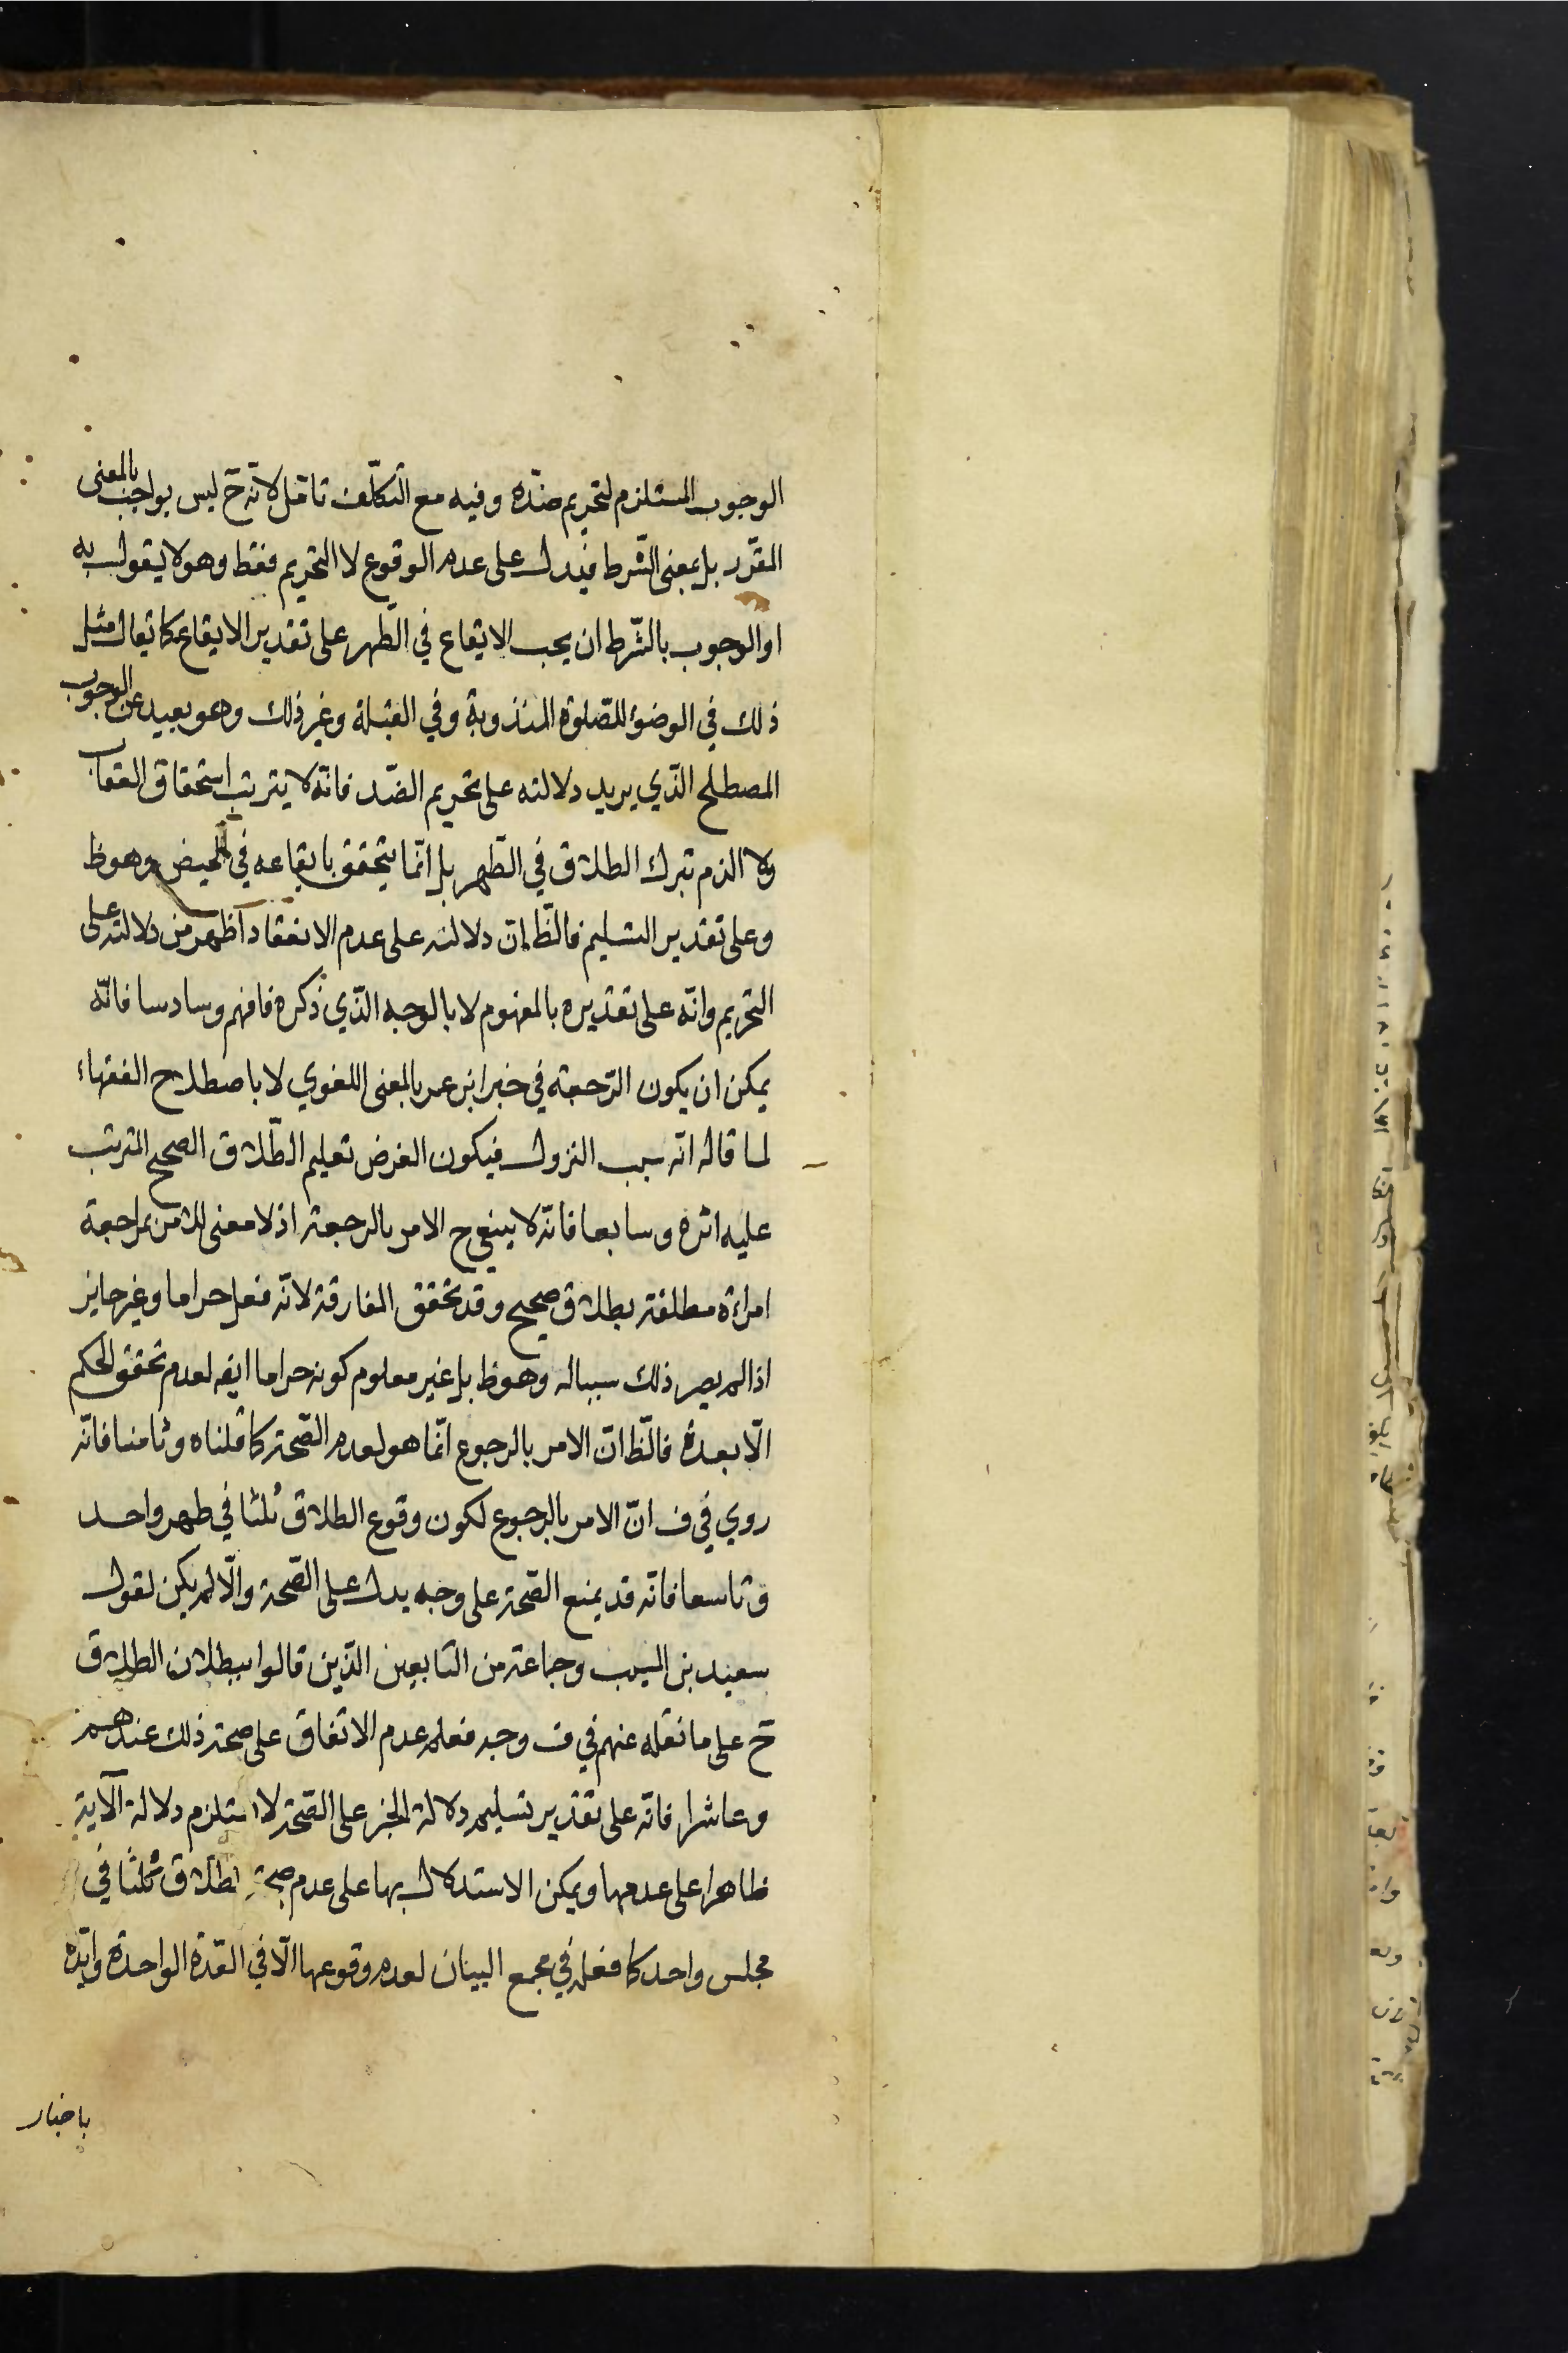 الوجوب المستلزم لتحريم ضدّه وفيه مع التكلّف تأمّل لانّه ح ليس بواجب بالمعنى
المقرّر بل بمعنى الشّرط فيدل على عدم الوقوع لا التحريم فقط وهو لا يقول به
او الوجوب بالشّرط ان يجب الايقاع في الطّهر على تقدير الايقاع كما يقال مثل
ذلك في الوضوء للصّلوة المندوبة وفي القبلة وغير ذلك وهو بعيد عن الوجوب
المصطلح الّذي يريد دلالته على تحريم الضّد فانّه لا يترتب استحقاق العقاب
ولا الذم بترك الطلاق في الطّهر بل انّما يتحقق بايقاعه في الحيض وهو ظ
وعلى تقدير التسليم فالظّ انّ دلالته على عدم الانعقاد اظهر من دلالته على
التحريم وانّه على تقديره بالمفهوم لا بالوجه الّذي ذكره فافهم وسادسا فانّه
يمكن ان يكون الرّجعة في خبر ابن عمر بالمعنى اللغوي لا باصطلاح الفقهاء
لما قال انّه سبب النزول فيكون الغرض تعليم الطّلاق الصحيح المترتب
عليه اثره وسابعا فانّه لا ينبغي ح الامر بالرجعة اذ لا معنى للامر بمراجعة
امراءة مطلقة بطلاق صحيح وقد تحقق المفارقة لانّه فعل حراما وغير جايز
اذ لم يصر ذلك سببا له وهو ظ بل غير معلوم كونه حراما ايضه لعدم تحقق الحكم
الّا بعدهٔ فالظّ انّ الامر بالرجوع انّما هو لعدم الصّحة كما قلناه وثامنا فانّه
روي في ف انّ الامر بالرجوع لكون وقوع الطلاق ثلثا في طهر واحد
وتاسعا فانّه قد يمنع الصّحة على وجه يدل على الصّحة والّا لم يكن لقول
سعيد بن المسيب وجماعة من التابعين الذّين قالوا ببطلان الطلاق
ح على ما نقله عنهم في ف وجه فعلم عدم الاتفاق على صحة ذلك عندهم
وعاشرا فانّه على تقدير تسليم دلالة الخبر على الصّحة لا يستلزم دلالة الآية
ظاهرا على عدمها ويمكن الاستدلال بها على عدم صحة الطلاق ثلثا في
مجلس واحد كما فعله في مجمع البيان لعدم وقوعها الّا في العّدة الواحدة وايّده
باخبار